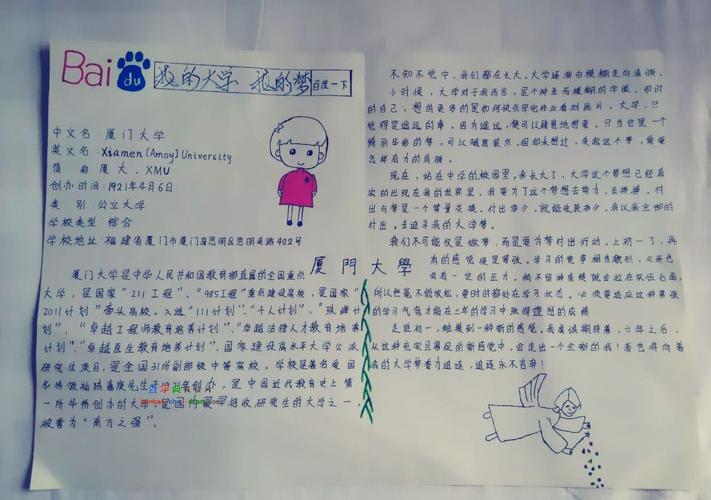 Bai du 我的大学 我的梦 百度一下
中文名:厦门大学
英文名:Xiamen (Amoy) University
简 称:厦大、XMU
创办时间:1921年4月6日
类 别:公立大学
学校类型:综合
学校地址:福建省厦门市思明区思明南路402号
厦門大學
厦门大学是中华人民共和国教育部直属的全国重点
大学,是国家“211工程”、“985工程”重点建设高校,是国家“
2011计划”牵头高校。入选“111计划”、“千人计划”、“珠峰计
划”、“卓越工程师教育培养计划”、“卓越法律人才教育培养
计划”、“卓越医生教育培养计划”、国家建设高水平大学公派
研究生项目,是全国31所副部级中管高校。学校是著名爱国
华侨领袖陈嘉庚先生于1921年创办,是中国近代教育史上第
一所华侨创办的大学,是国内最早招收研究生的大学之一,
被誉为“南方之强”。
不知不觉中,我们都在长大。大学逐渐由模糊走向清晰。
小时候,大学对于我而言,是个神圣而模糊的字眼。那时
的自己,想的更多的是如何快点写完作业看动画片。大学,只
觉得是遥远的事。因为遥远,便可以随意地想象。只当它是一个
绚丽华彩的梦,可以随意装点。但却未想过,凭起这个梦,需要
怎样有力的肩膀。
现在,站在中学的校园里,我长大了,大学这个梦想已经真
实的出现在我的世界里。我要为了这个梦想去努力、去拼搏。付
出与梦是一个等量交换。付出多少,就能收获多少。我以我全部的
付出,去追寻我的大学梦。
我们不可能仅是做梦,而是要为梦付出行动。上初一了,再
有的感觉便是紧张。学习的竞争相当激烈,从而也
会有一定的压力。稍不留神成绩就会拉在队伍后面。
所以丝毫不能放松,要时时刻处在学习状态。必须要适应这种紧张
的学习气氛才能在三年的学习中取得理想的成绩
走进初一,触摸到一种新的感觉。我真诚期待着,六年之后,
从这种充实且幕后的新感觉中,会走出一个全新的我!我也将向着
我的大学梦奋力追逐,追逐永不言弃!